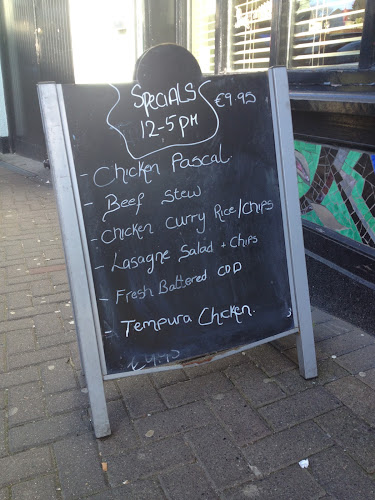 SpecIALS €9.95
12-5pm
- Chicken Pascal.
- Beef Stew
- Chicken Curry Rice/Chips
- Lasagne Salad + Chips
- Fresh Battered COD
- Tempura Chicken.
€9.95